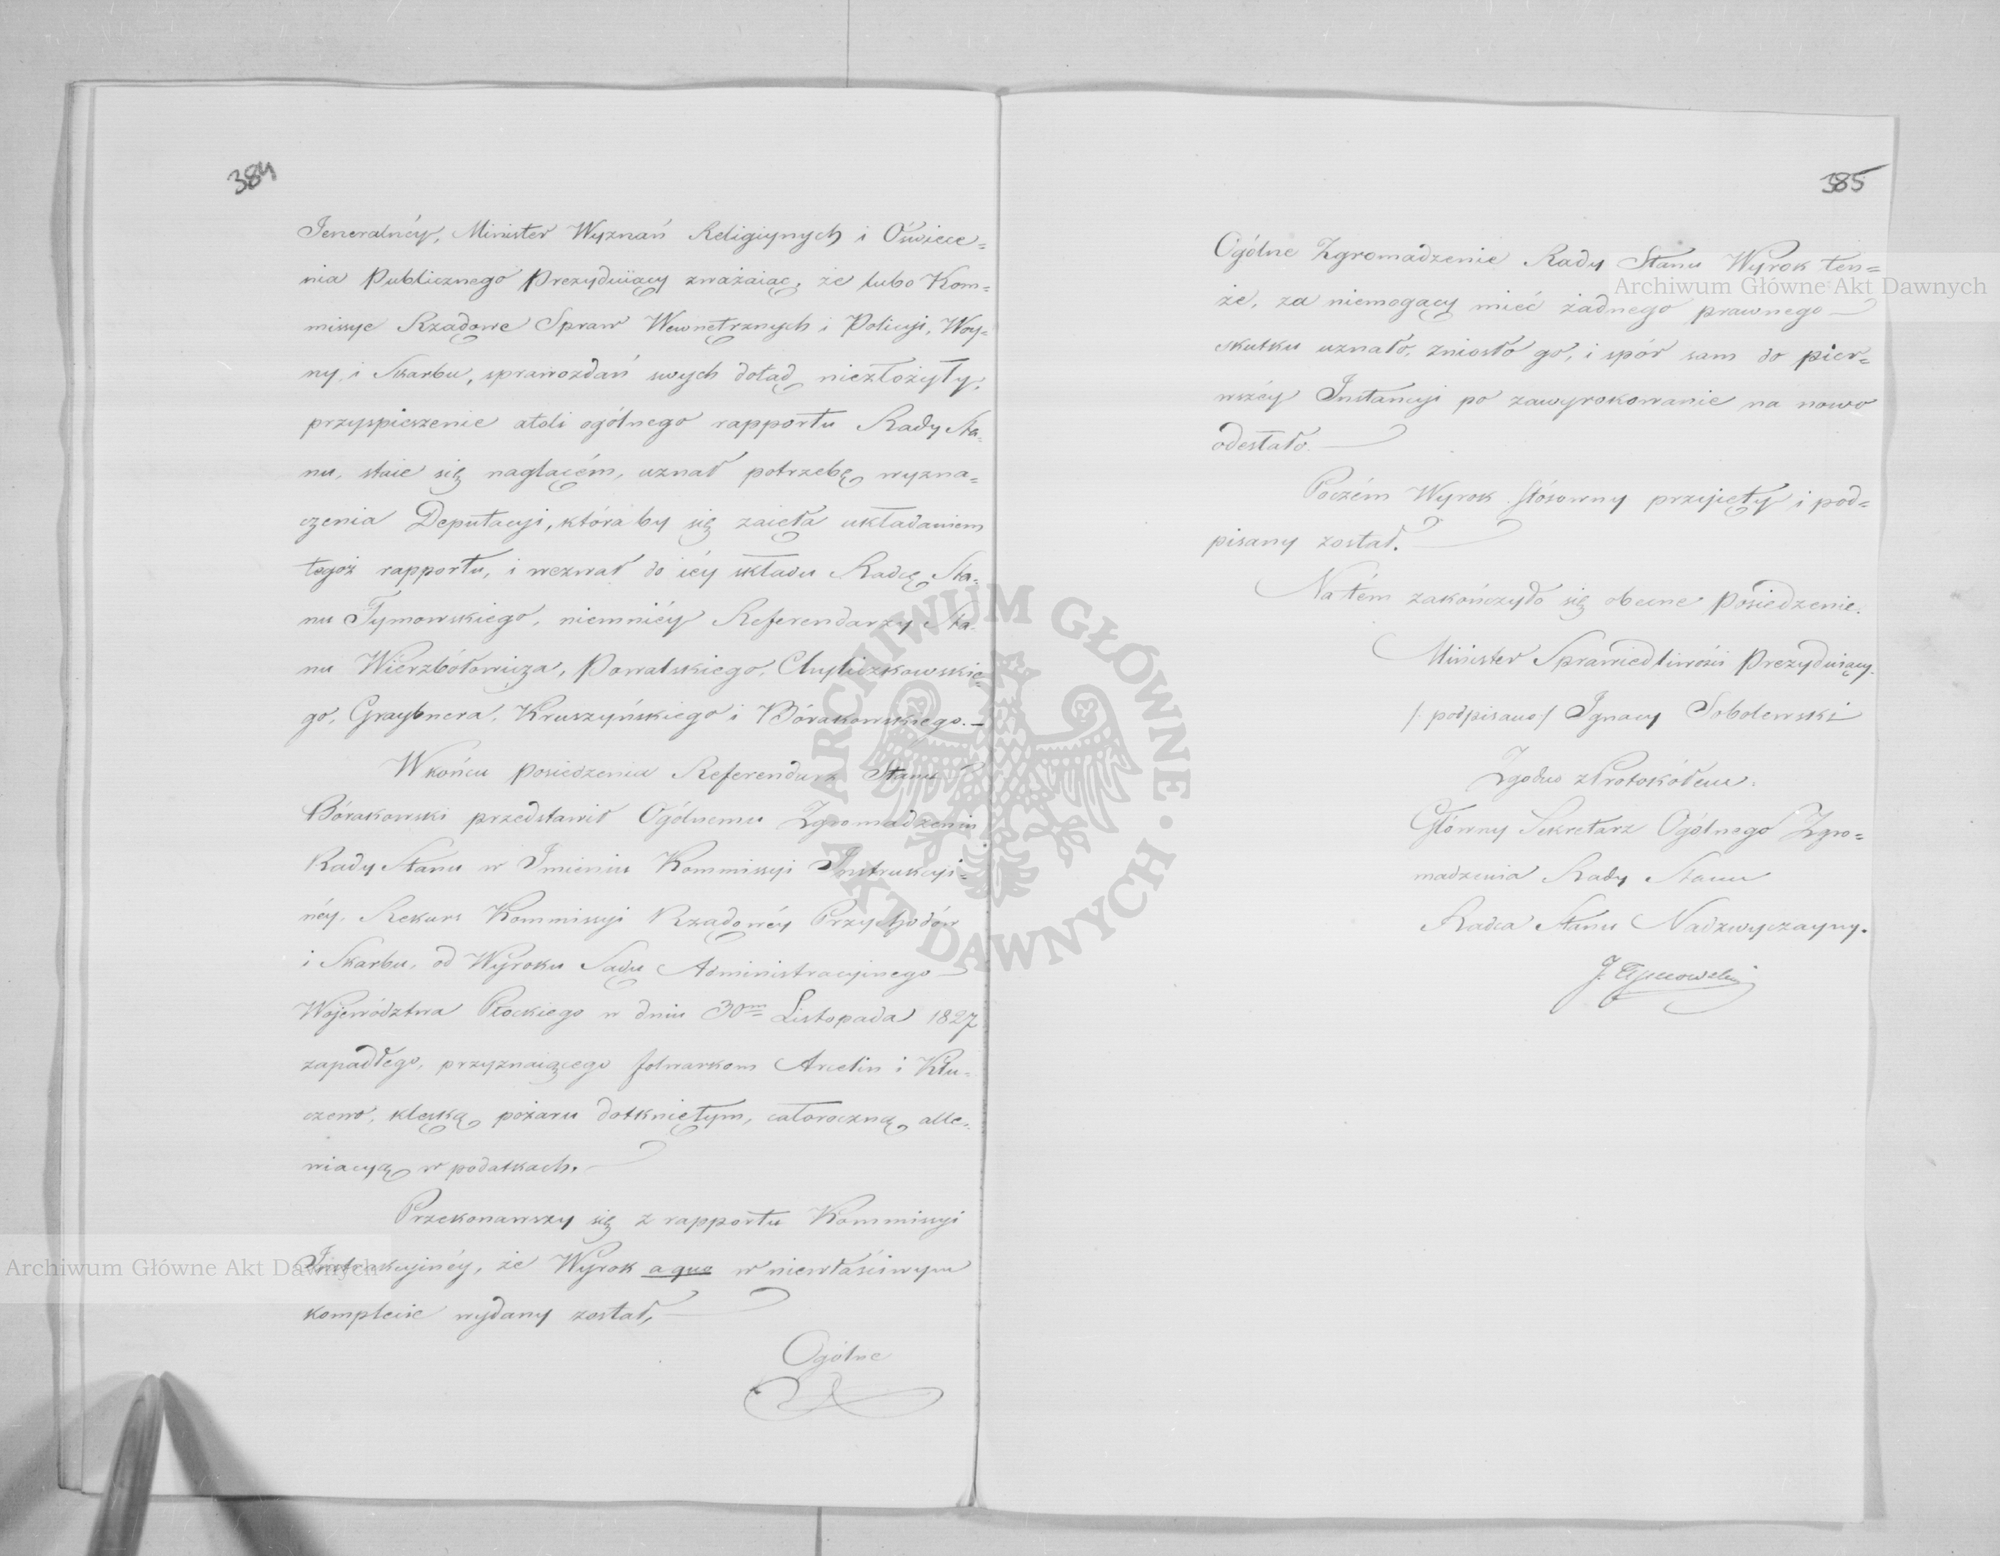 384
Jeneralnéy, Minister Wyznań Religiynych i Oświece=
nia Publicznego Prezyduiący zważaiąc, że lubo Kom=
missye Rządowe Spraw Wewnętrznych i Policyi, Woy=
ny, i Skarbu, sprawozdań swych dotąd niezłożyły,
przyspieszenie atoli ogólnego rapportu Rady Sta=
nu, staie się naglącém, uznał potrzebę wyzna=
czenia Deputacyi, któraby się zaięła układaniem
tegoż rapportu, i wezwał do iéy składu Radcę Sta=
nu Tymowskiego, niemniéy Referendarzy Sta=
nu Wierzbołowicza, Powalskiego, Chyliczkowskie=
go, Graybnera, Kruszyńskiego i Bórakowskiego. —
W końcu posiedzenia Referendarz Stanu
Bórakowski przedstawił Ogólnemu Zgromadzeniu
Rady Stanu w Imieniu Kommissyi Instrukcyi=
néy, Rekurs Kommissyi Rządowéy Przychodów
i Skarbu, od Wyroku Sądu Administracyinego —
Województwa Płockiego w dniu 30m Listopada 1827
zapadłego, przyznaiącego folwarkom Arcelin i Klu=
czewo, klęską pożaru dotkniętym, całoroczną alle=
wiacyą w podatkach. —
Przekonawszy się z rapportu Kommissyi
Instrukcyinéy, że Wyrok a quo w niewłaściwym
komplecie wydany został, —
Ogólne
385
Ogólne Zgromadzenie Rady Stanu Wyrok ten=
że, za niemogący mieć żadnego prawnego —
skutku uznało, zniosło go, i spór sam do pier=
wszéy Instancyi po zawyrokowanie na nowo
odesłało. —
Poczém Wyrok stósowny przyięty i pod=
pisany został. —
Na tém zakończyło się obecne Posiedzenie.
Minister Sprawiedliwości Prezyduiący.
/podpisano/ Ignacy Sobolewski
Zgodno z Protokółem.
Główny Sekretarz Ogólnego Zgro=
madzenia Rady Stanu
Radca Stanu Nadzwyczayny.
J. Tymowski
Archiwum Główne Akt Dawnych
Archiwum Główne Akt Dawnych
ARCHIWUM GŁÓWNE · AKT DAWNYCH ·